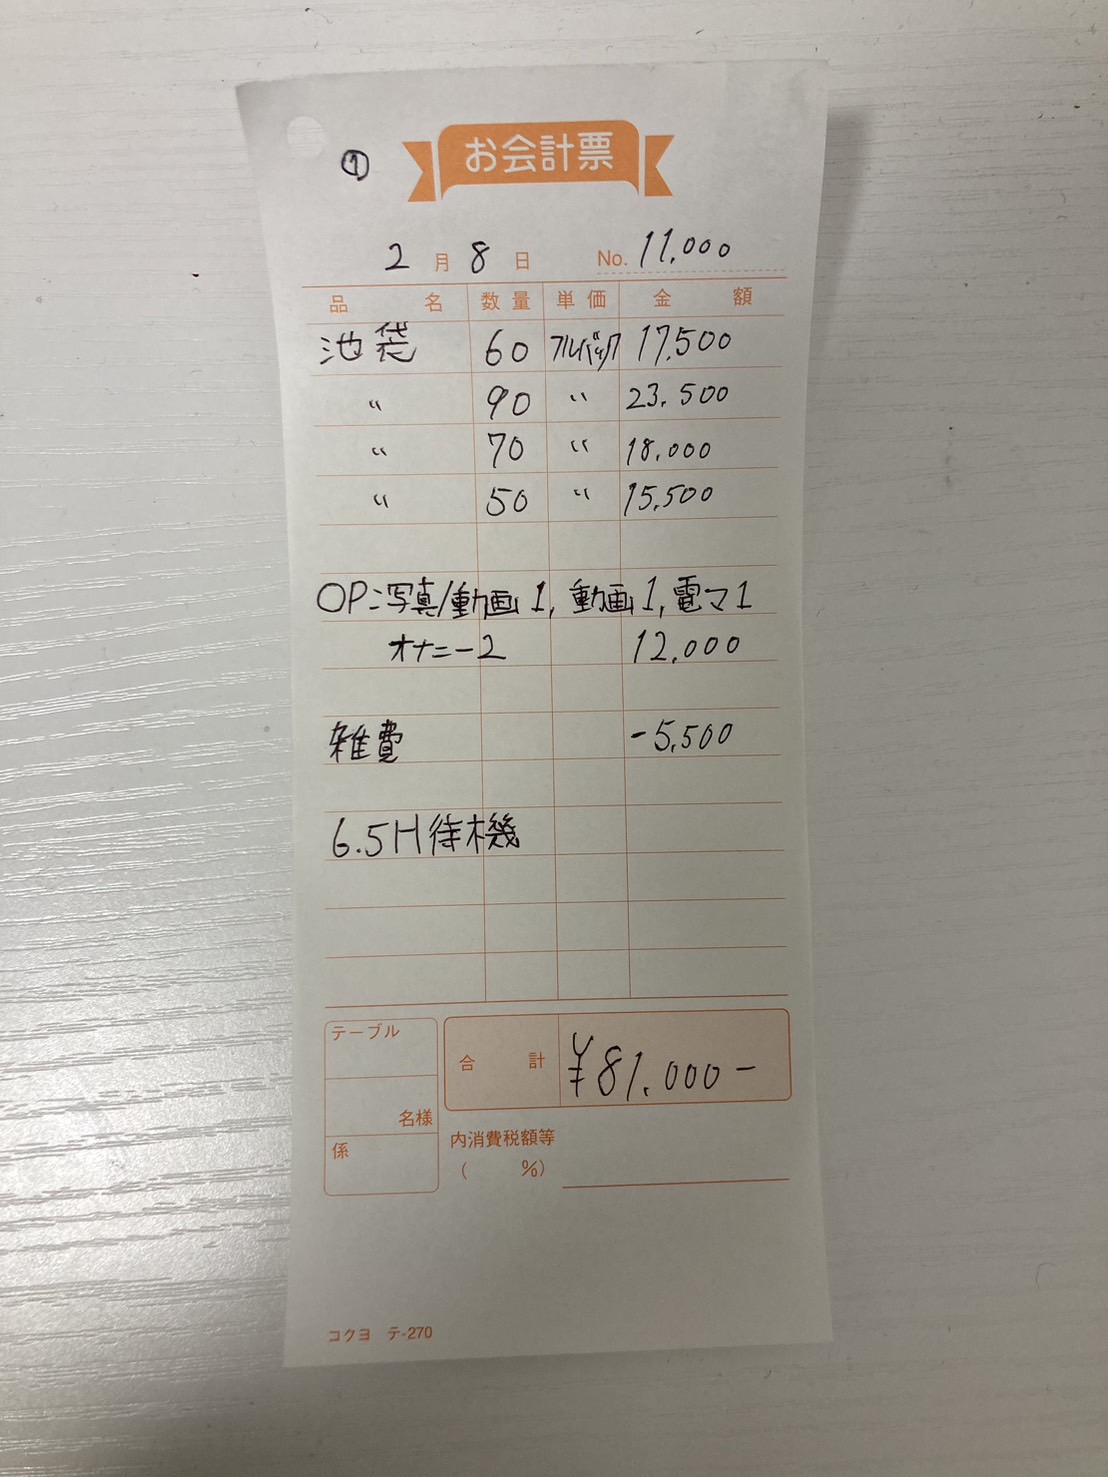 ①
お会計票
2月8日 No. 11,000
品名 数量 単価 金額
池袋 60 フルバック 17,500
〃 90 〃 23,500
〃 70 〃 18,000
〃 50 〃 15,500
OP:写真/動画1, 動画1, 電マ1
オナニー2 12,000
雑費 -5,500
6.5H待機
テーブル
合計 ¥81,000-
名様
係
内消費税額等
( %)
コクヨ テ-270